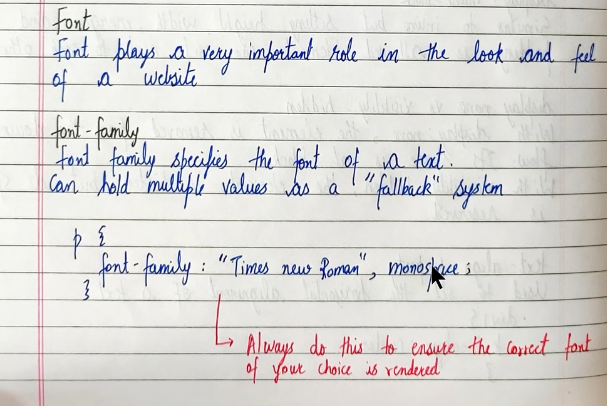 Font
Font plays a very important role in the look and feel
of a website
font-family
Font family specifies the font of a text.
Can hold multiple values as a "fallback" system
p {
font-family : "Times new Roman", monospace ;
}
Always do this to ensure the correct font
of your choice is rendered